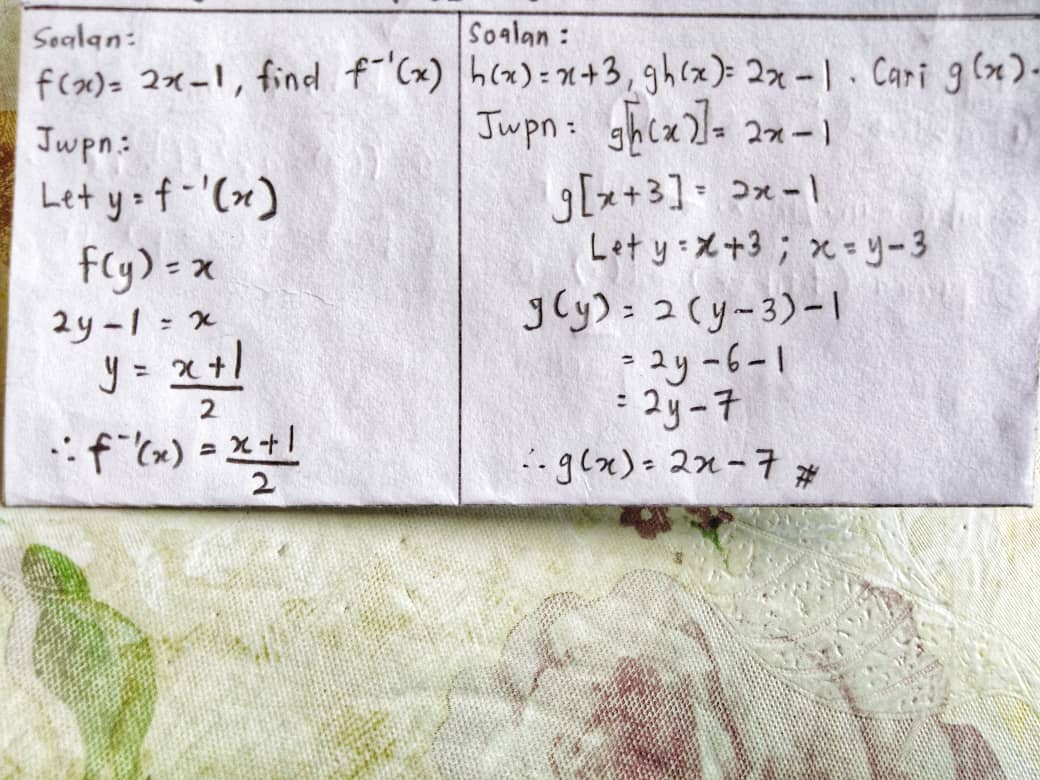 Soalan:
f(x) = 2x-1, find f⁻¹(x)
Jwpn:
Let y = f⁻¹(x)
f(y) = x
2y-1 = x
y = x+1
2
∴ f⁻¹(x) = x+1
2
Soalan :
h(x) = x+3, gh(x) = 2x-1. Cari g(x).
Jwpn: g[h(x)] = 2x-1
g[x+3] = 2x-1
Let y = x+3 ; x = y-3
g(y) = 2(y-3)-1
= 2y-6-1
= 2y-7
∴ g(x) = 2x-7 #